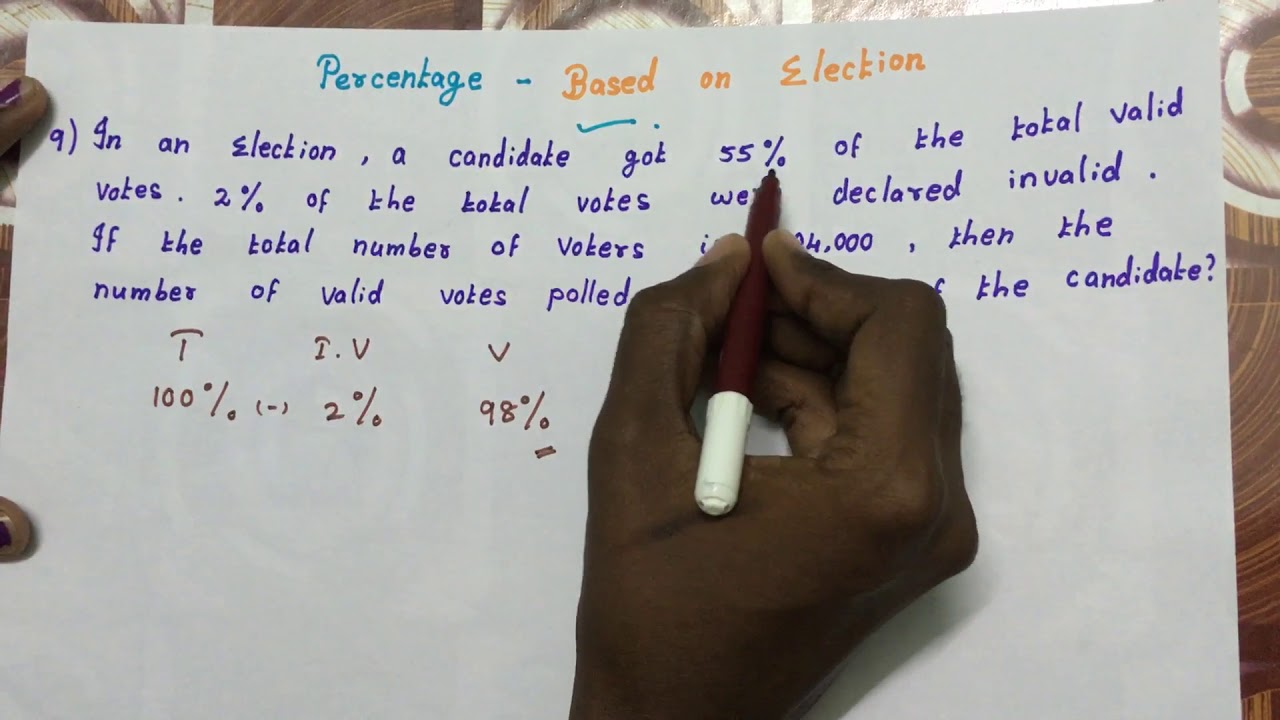 Percentage - Based on Election
9) In an Election, a candidate got 55% of the total valid
votes. 2% of the total votes were declared invalid.
If the total number of voters 04,000, then the
number of valid votes polled the candidate?
T I.V V
100% (-) 2% 98%